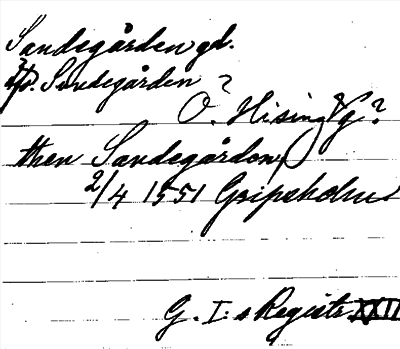 Sandegården gd.
Sandegården ?
Ö. Hising Vg. ?
then Sandegården
2/4 1551 Gripsholm
G. I:s Registr. XXII